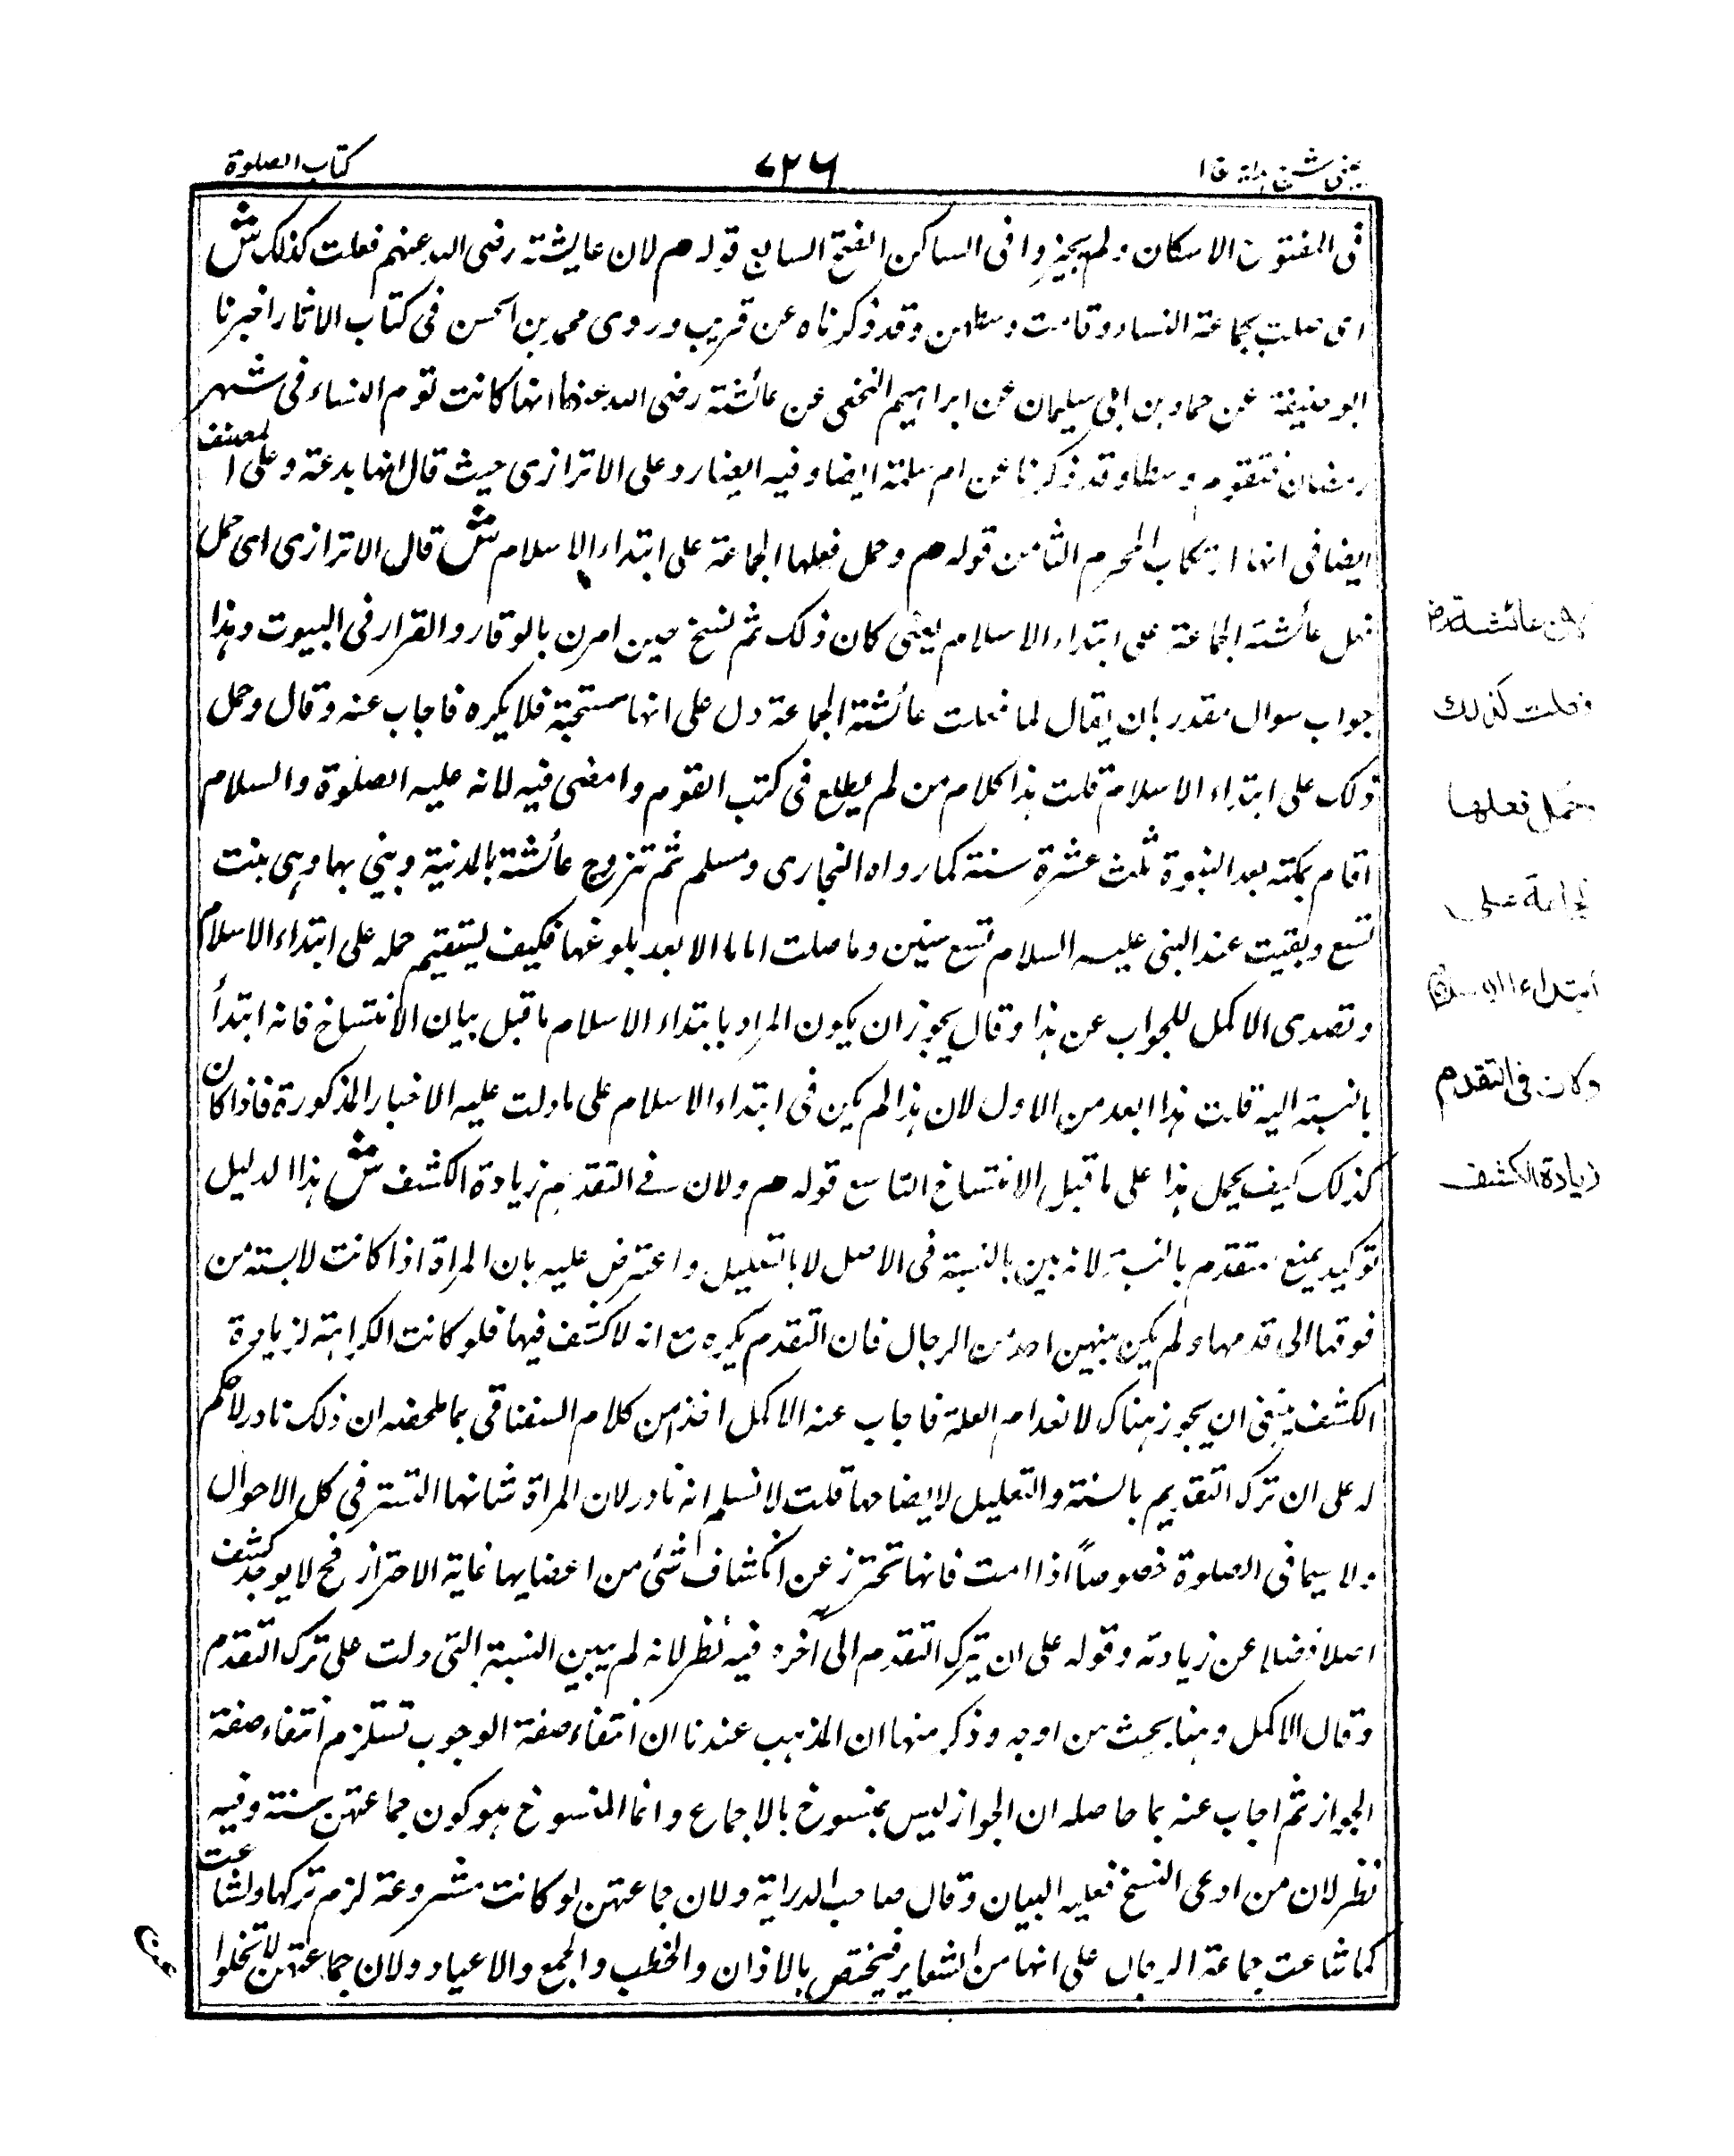 عینی شرح ہدایہ ج ا
٧٢٦
كتاب الصلوة
فى المفتوح الاسكان ولم يجيزوا فى الساكن الفتح السابع قوله م لان عايشة رضى الله عنهم فعلت كذلك ش
اى صلت بجماعة النساء وقامت وسطهن وقد ذكرناه عن قريب وروى محمد بن الحسن فى كتاب الاثار اخبرنا
ابو حنيفة عن حماد بن ابى سليمان عن ابراهيم النخعى عن عائشة رضى الله عنها انها كانت تؤم النساء فى شهر
رمضان فتقوم وسطا وقد ذكرنا عن ام سلمة ايضا وفيه ايضا رد على الاترازى حيث قال انها بدعة وعلى المصنف
ايضا فى انها ارتكاب المحرم الثامن قوله م وحمل فعلها الجماعة على ابتداء الاسلام ش قال الاترازى اى حمل
فعل عائشة الجماعة على ابتداء الاسلام يعنى كان ذلك ثم نسخ حين امرن بالوقار والقرار فى البيوت وهذا
جواب سوال مقدر بان يقال لما فعلت عائشة الجماعة دل على انها مستحبة فلا يكره فاجاب عنه وقال وحمل
ذلك على ابتداء الاسلام قلت هذا كلام من لم يطلع فى كتب القوم وامضى فيه لانه عليه الصلوة والسلام
اقام بمكة بعد النبوة ثلث عشرة سنة كما رواه البخارى ومسلم ثم تزوج عائشة بالمدينة وبنى بها وهى بنت
تسع وبقيت عند النبى عليه السلام تسع سنين وما صلت اماما الا بعد بلوغها فكيف يستقيم حمله على ابتداء الاسلام
وتصدى الاكمل للجواب عن هذا وقال يجوز ان يكون المراد بابتداء الاسلام ما قبل بيان الانتساخ فانه ابتدأ
بالنسبة اليه قلت هذا ابعد من الاول لان هذا لم يكن فى ابتداء الاسلام على ما دلت عليه الاخبار المذكورة فاذا كان
كذلك كيف يحمل هذا على ما قبل الانتساخ التاسع قوله م ولان فى التقدم زيادة الكشف ش هذا الدليل
توكيد يمنع متقدم بالنسبة لانه بين بالنسبة فى الاصل لا بالتعليل واعترض عليه بان المراة اذا كانت لابسة من
فوقها الى قدمها ولم يكن بينهن احد من الرجال فان التقدم يكره مع انه لا كشف فيها فلو كانت الكراهة لزيادة
الكشف ينبغى ان يجوز هناك لانعدام العلة فاجاب عنه الاكمل اخذا من كلام السغناقى بما ملخصه ان ذلك نادر لا حكم
له على ان ترك التقديم بالسنة والتعليل لايضاحها قلت لا نسلم انه نادر لان المراة شانها التستر فى كل الاحوال
ولا سيما فى الصلوة خصوصاً اذا امت فانها تحترز عن انكشاف شئ من اعضايها غاية الاحتراز فح لا يوجد كشف
اصلا فضلا عن زيادته وقوله على ان يترك التقدم الى آخره فيه نظر لانه لم يبين النسبة التى دلت على ترك التقدم
وقال الاكمل وهنا بحث من اوجه وذكر منها ان المذهب عندنا ان انتفاء صفة الوجوب تستلزم انتفاء صفة
الجواز ثم اجاب عنه بما حاصله ان الجواز ليس بمنسوخ بالاجماع وانما المنسوخ هو كون جماعتهن سنة وفيه
نظر لان من ادعى النسخ فعليه البيان وقال صاحب الدراية ولان جماعتهن لو كانت مشروعة لزم تركها ولشاعت
كما شاعت جماعة الرجال على انها من الشعاير فيختص بالاذان والخطب والجمع والاعياد ولان جماعتهن لا تخلوا
لان عائشة رض
فعلت كذلك
وحمل فعلها
الجماعة على
ابتداء الاسلام
ولان فى التقدم
زيادة الكشف